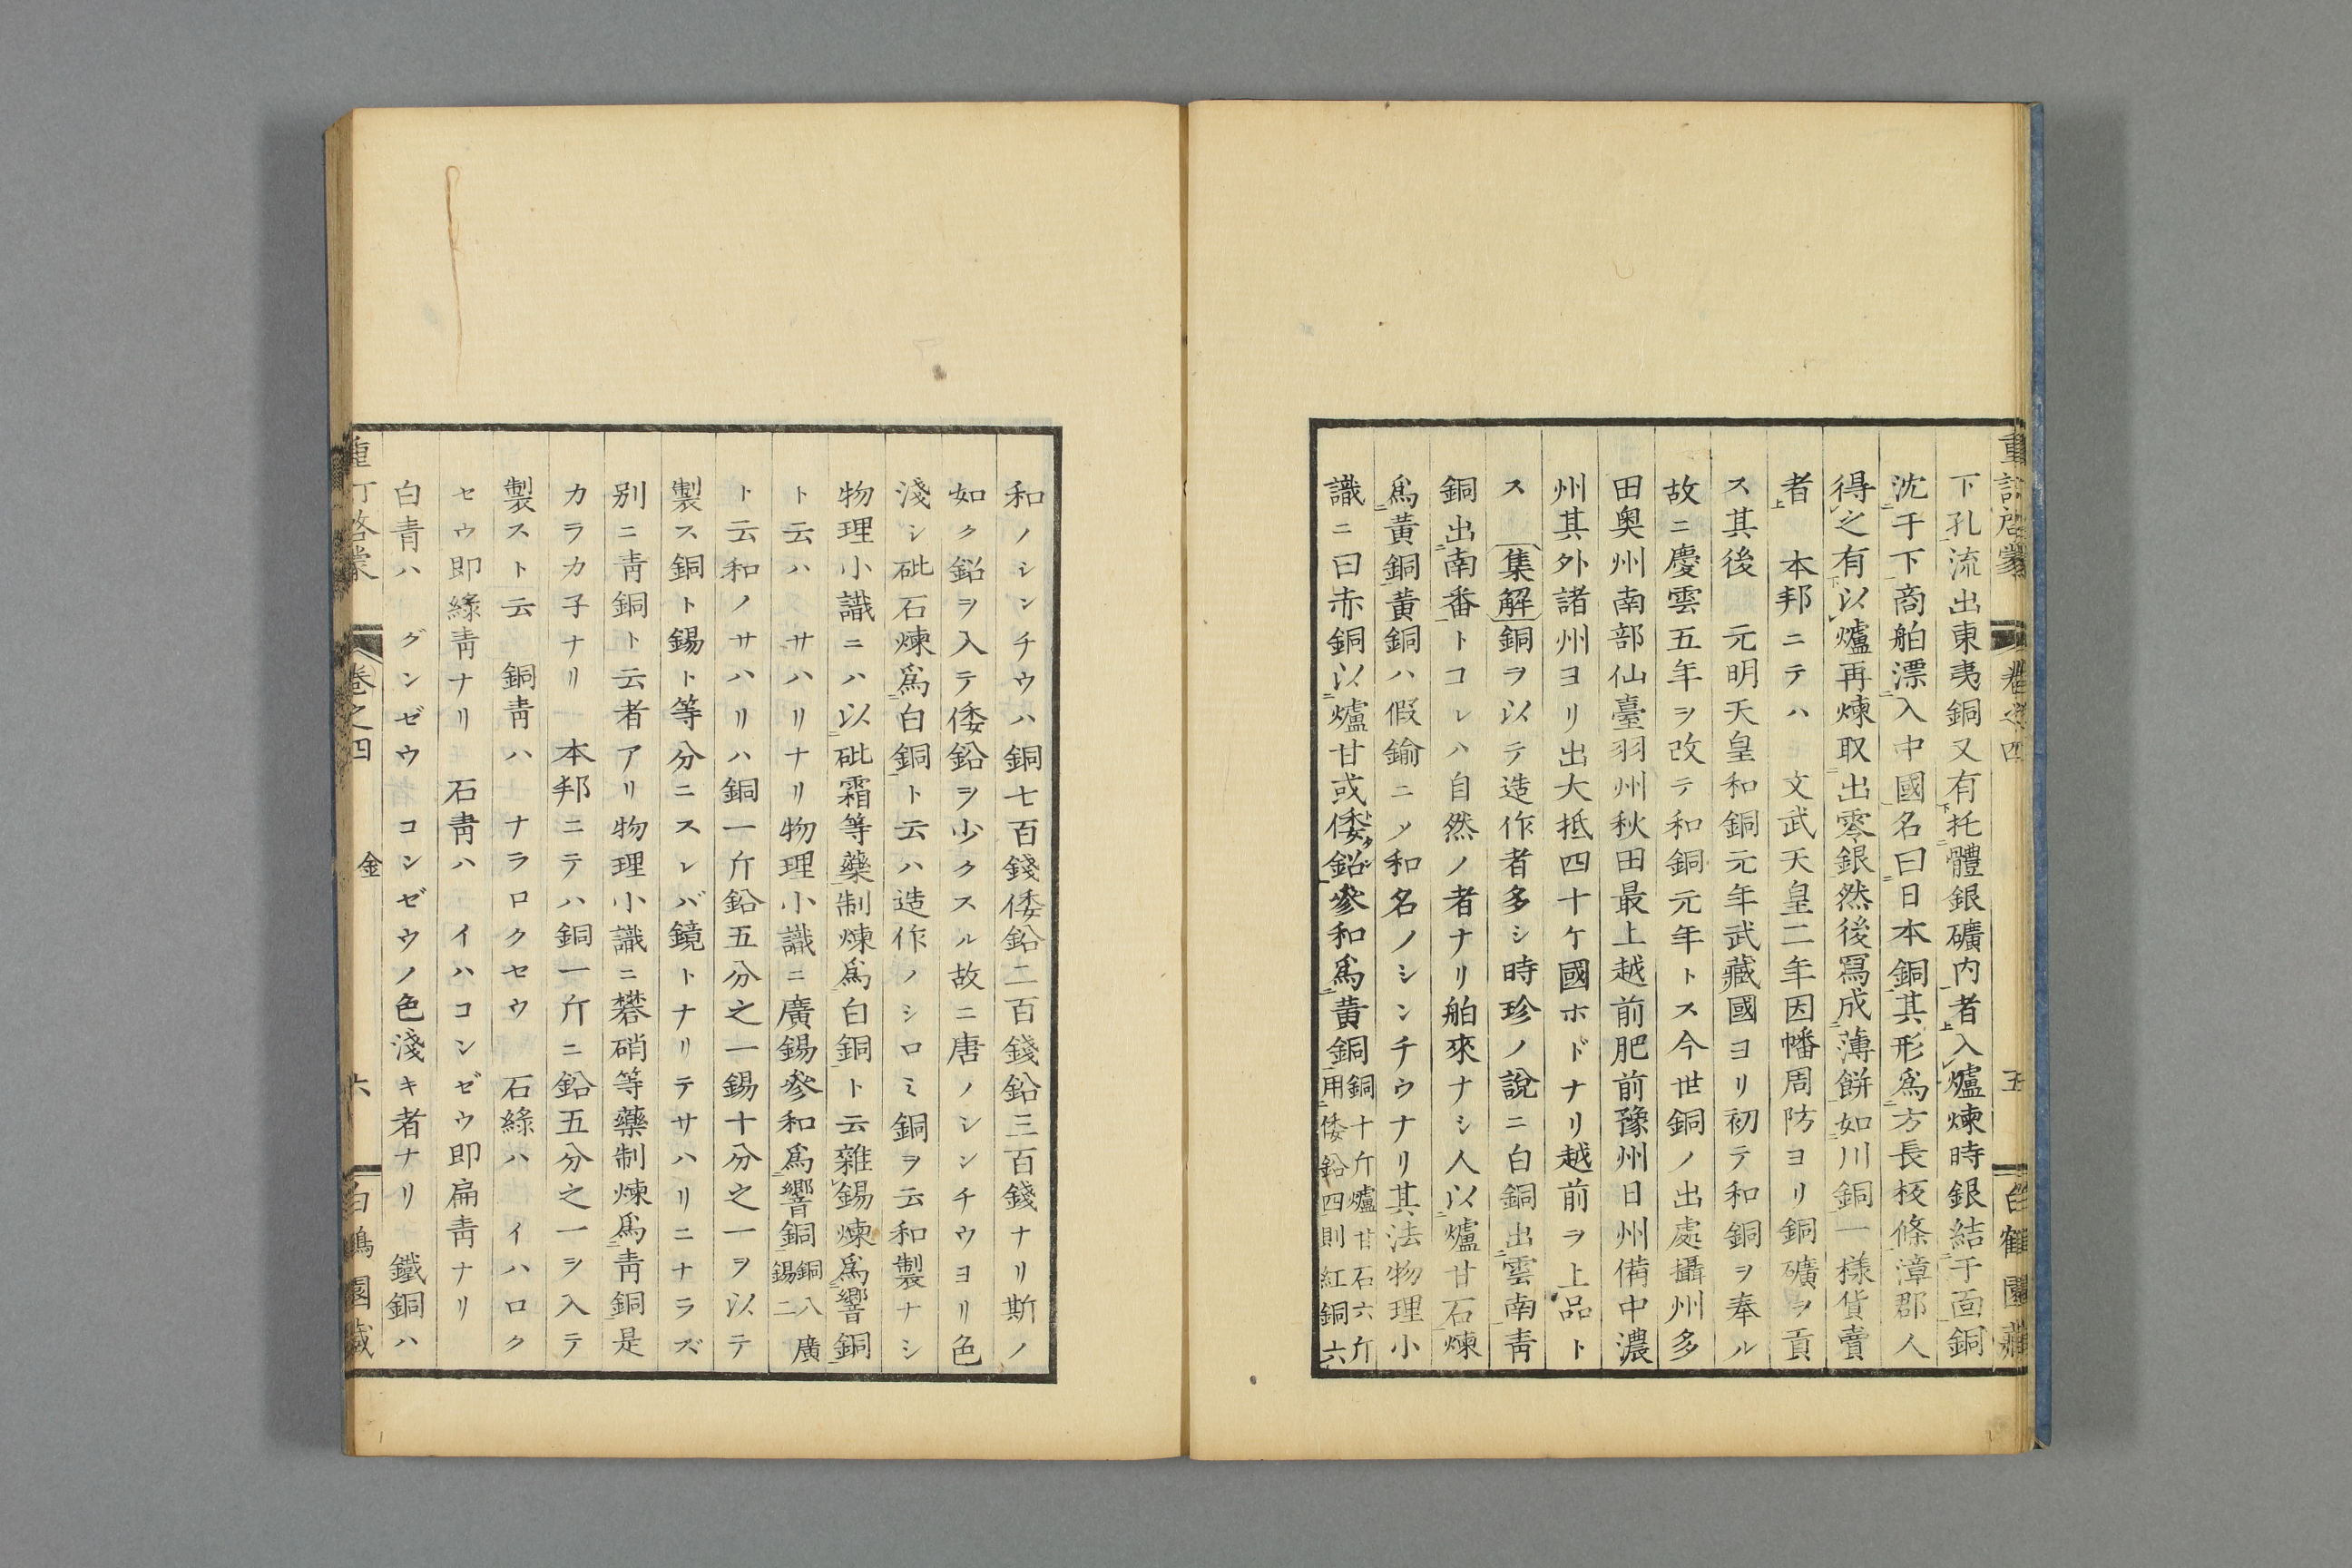 下孔流出東夷銅又有托體銀礦内者入爐煉時銀結于面銅
沈于下商舶漂入中國名曰日本銅其形爲方長板條漳郡人
得之有以爐再煉取出零銀然後冩成薄餅如川銅一樣貨賣
者　本邦ニテハ　文武天皇二年因幡周防ヨリ銅礦ヲ貢
ス其後　元明天皇和銅元年武藏國ヨリ初テ和銅ヲ奉ル
故ニ慶雲五年ヲ改テ和銅元年トス今世銅ノ出處攝州多
田奥州南部仙臺羽州秋田最上越前肥前豫州日州備中濃
州其外諸州ヨリ出大抵四十ケ國ホドナリ越前ヲ上品ト
ス　集解銅ヲ以テ造作者多シ時珍ノ說ニ白銅出雲南靑
銅出南番トコレハ自然ノ者ナリ舶來ナシ人以爐甘石煉
爲黃銅黃銅ハ假鍮ニノ和名ノシンチウナリ其法物理小
識ニ曰赤銅以爐甘或倭鉛參和爲黃銅銅十斤爐甘石六斤
用倭鉛四則紅銅六
和ノシンチウハ銅七百錢倭鉛二百錢鉛三百錢ナリ斯ノ
如ク鉛ヲ入テ倭鉛ヲ少クスル故ニ唐ノシンチウヨリ色
淺シ砒石煉爲白銅ト云ハ造作ノシロミ銅ヲ云和製ナシ
物理小識ニハ以砒霜等藥制煉爲白銅ト云雜錫煉爲響銅
ト云ハサハリナリ物理小識ニ廣錫參和爲響銅銅八廣
錫二
ト云和ノサハリハ銅一斤鉛五分之一錫十分之一ヲ以テ
製ス銅ト錫ト等分ニスレバ鏡トナリテサハリニナラズ
別ニ靑銅ト云者アリ物理小識ニ礬硝等藥制煉爲靑銅是
カラカ子ナリ　本邦ニテハ銅一斤ニ鉛五分之一ヲ入テ
製スト云　銅靑ハ　ナラロクセウ　石綠ハ　イハロク
セウ即綠靑ナリ　石靑ハ　イハコンゼウ即扁靑ナリ
白青ハ　グンゼウ　コンゼウノ色淺キ者ナリ　鐵銅ハ
卷之四　金　六